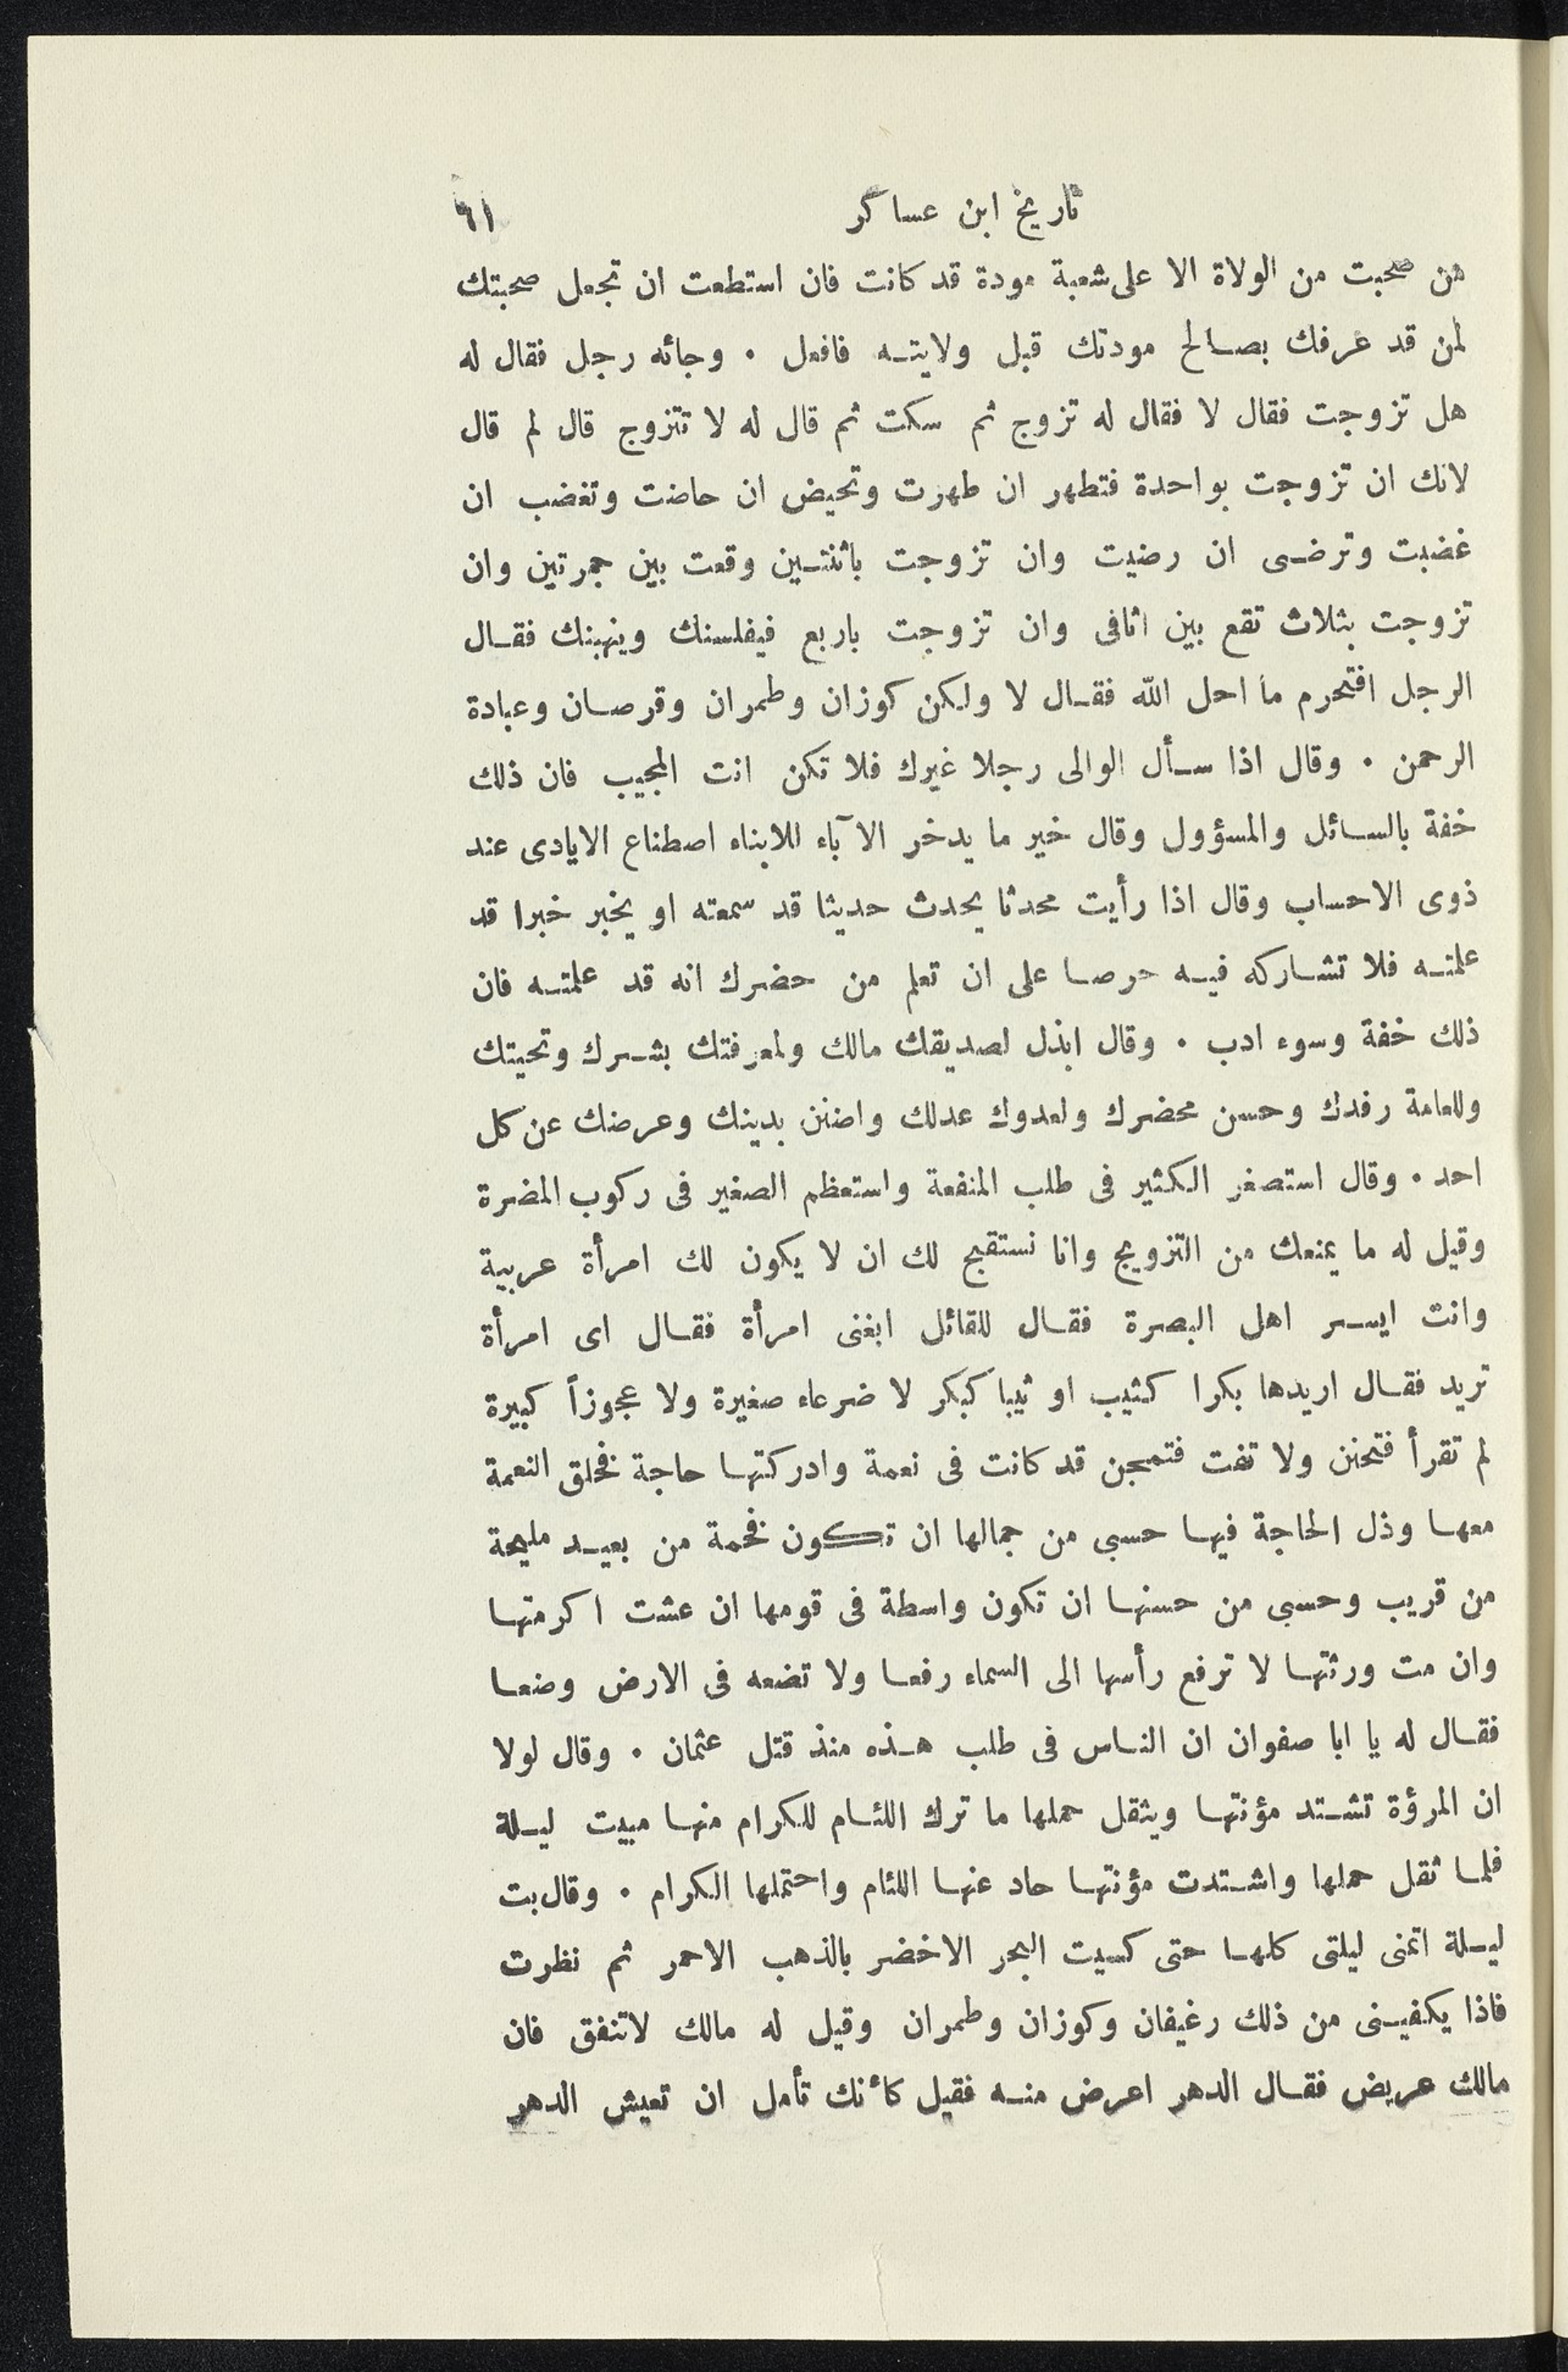 تاريخ ابن عساكر ٦١
من صحبت من الولاة الا على شعبة مودة قد كانت فان استطعت ان تجعل صحبتك
لمن قد عرفك بصالح مودتك قبل ولايته فافعل . وجائه رجل فقال له
هل تزوجت فقال لا فقال له تزوج ثم سكت ثم قال له لا تتزوج قال لم قال
لانك ان تزوجت بواحدة فتطهر ان طهرت وتحيض ان حاضت وتغضب ان
غضبت وترضى ان رضيت وان تزوجت باثنتين وقعت بين جمرتين وان
تزوجت بثلاث تقع بين اثافى وان تزوجت باربع فيفلسنك وينهبنك فقال
الرجل افتحرم ما احل الله فقال لا ولكن كوزان وطمران وقرصان وعبادة
الرحمن . وقال اذا سأل الوالى رجلا غيرك فلا تكن انت المجيب فان ذلك
خفة بالسائل والمسؤول وقال خير ما يدخر الآباء للابناء اصطناع الايادى عند
ذوى الاحساب وقال اذا رأيت محدثا يحدث حديثا قد سمعته او يخبر خبرا قد
علمته فلا تشاركه فيه حرصا على ان تعلم من حضرك انه قد علمته فان
ذلك خفة وسوء ادب . وقال ابذل لصديقك مالك ولمعرفتك بشرك وتحيتك
وللعامة رفدك وحسن محضرك ولعدوك عدلك واضنن بدينك وعرضك عن كل
احد . وقال استصغر الكثير فى طلب المنفعة واستعظم الصغير فى ركوب المضرة
وقيل له ما يمنعك من التزويج وانا نستقبح لك ان لا يكون لك امرأة عربية
وانت ايسر اهل البصرة فقال للقائل ابغنى امرأة فقال اى امرأة
تريد فقال اريدها بكرا كثيب او ثيبا كبكر لا ضرعاء صغيرة ولا عجوزاً كبيرة
لم تقرأ فتحنن ولا تفت فتمجن قد كانت فى نعمة وادركتها حاجة فخلق النعمة
معها وذل الحاجة فيها حسبى من جمالها ان تكون فخمة من بعيد مليحة
من قريب وحسبى من حسنها ان تكون واسطة فى قومها ان عشت اكرمتها
وان مت ورثتها لا ترفع رأسها الى السماء رفعا ولا تضعه فى الارض وضعا
فقال له يا ابا صفوان ان الناس فى طلب هذه منذ قتل عثمان . وقال لولا
ان المرؤة تشتد مؤنتها ويثقل حملها ما ترك اللئام للكرام منها مبيت ليلة
فلما ثقل حملها واشتدت مؤنتها حاد عنها اللئام واحتملها الكرام . وقال بت
ليلة اتمنى ليلتى كلها حتى كسيت البحر الاخضر بالذهب الاحمر ثم نظرت
فاذا يكفينى من ذلك رغيفان وكوزان وطمران وقيل له مالك لاتنفق فان
مالك عريض فقال الدهر اعرض منه فقيل كأنك تأمل ان تعيش الدهر